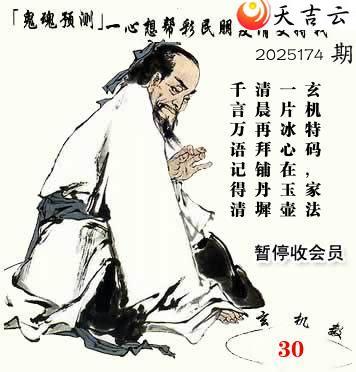 天吉云
「鬼魂预测」一心想帮彩民朋
2025174 期
玄机特码，家法
一片冰心在玉壶
清晨再拜铺丹墀
千言万语记得清
暂停收会员
玄机数
30